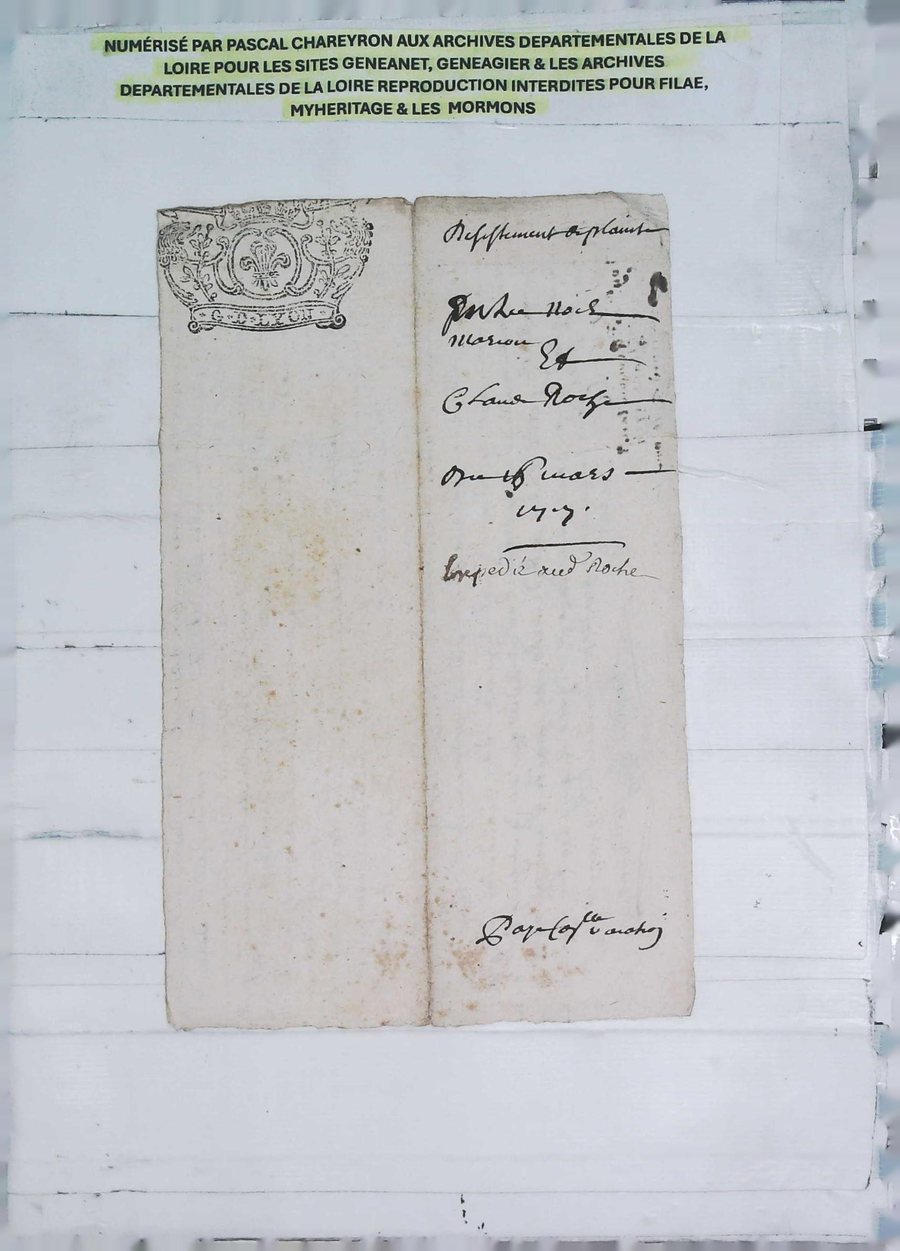 NUMÉRISÉ PAR PASCAL CHAREYRON AUX ARCHIVES DEPARTEMENTALES DE LA
LOIRE POUR LES SITES GENEANET, GENEAGIER & LES ARCHIVES
DEPARTEMENTALES DE LA LOIRE REPRODUCTION INTERDITES POUR FILAE,
MYHERITAGE & LES MORMONS
G·D·LYON
Desistement de plainte
Entre
Marcou
Et
Claude Roche
Du 16 mars
1707.
Expedié aud Roche